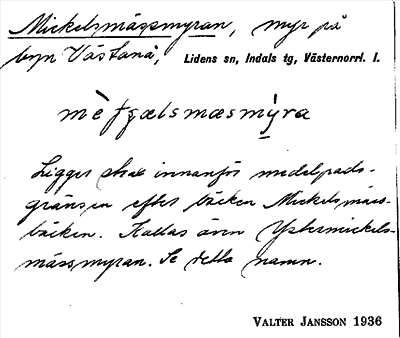 Mickelsmässmyran, myr på
byn Västanå, Lidens sn, Indals tg, Västernorrl. l.
mètjælsmæsmýra
Ligger strax innanför medelpads-
gränsen efter bäcken Mickelsmäss-
bäcken. Kallas även Ystermickels-
mässmyran. Se detta namn.
VALTER JANSSON 1936